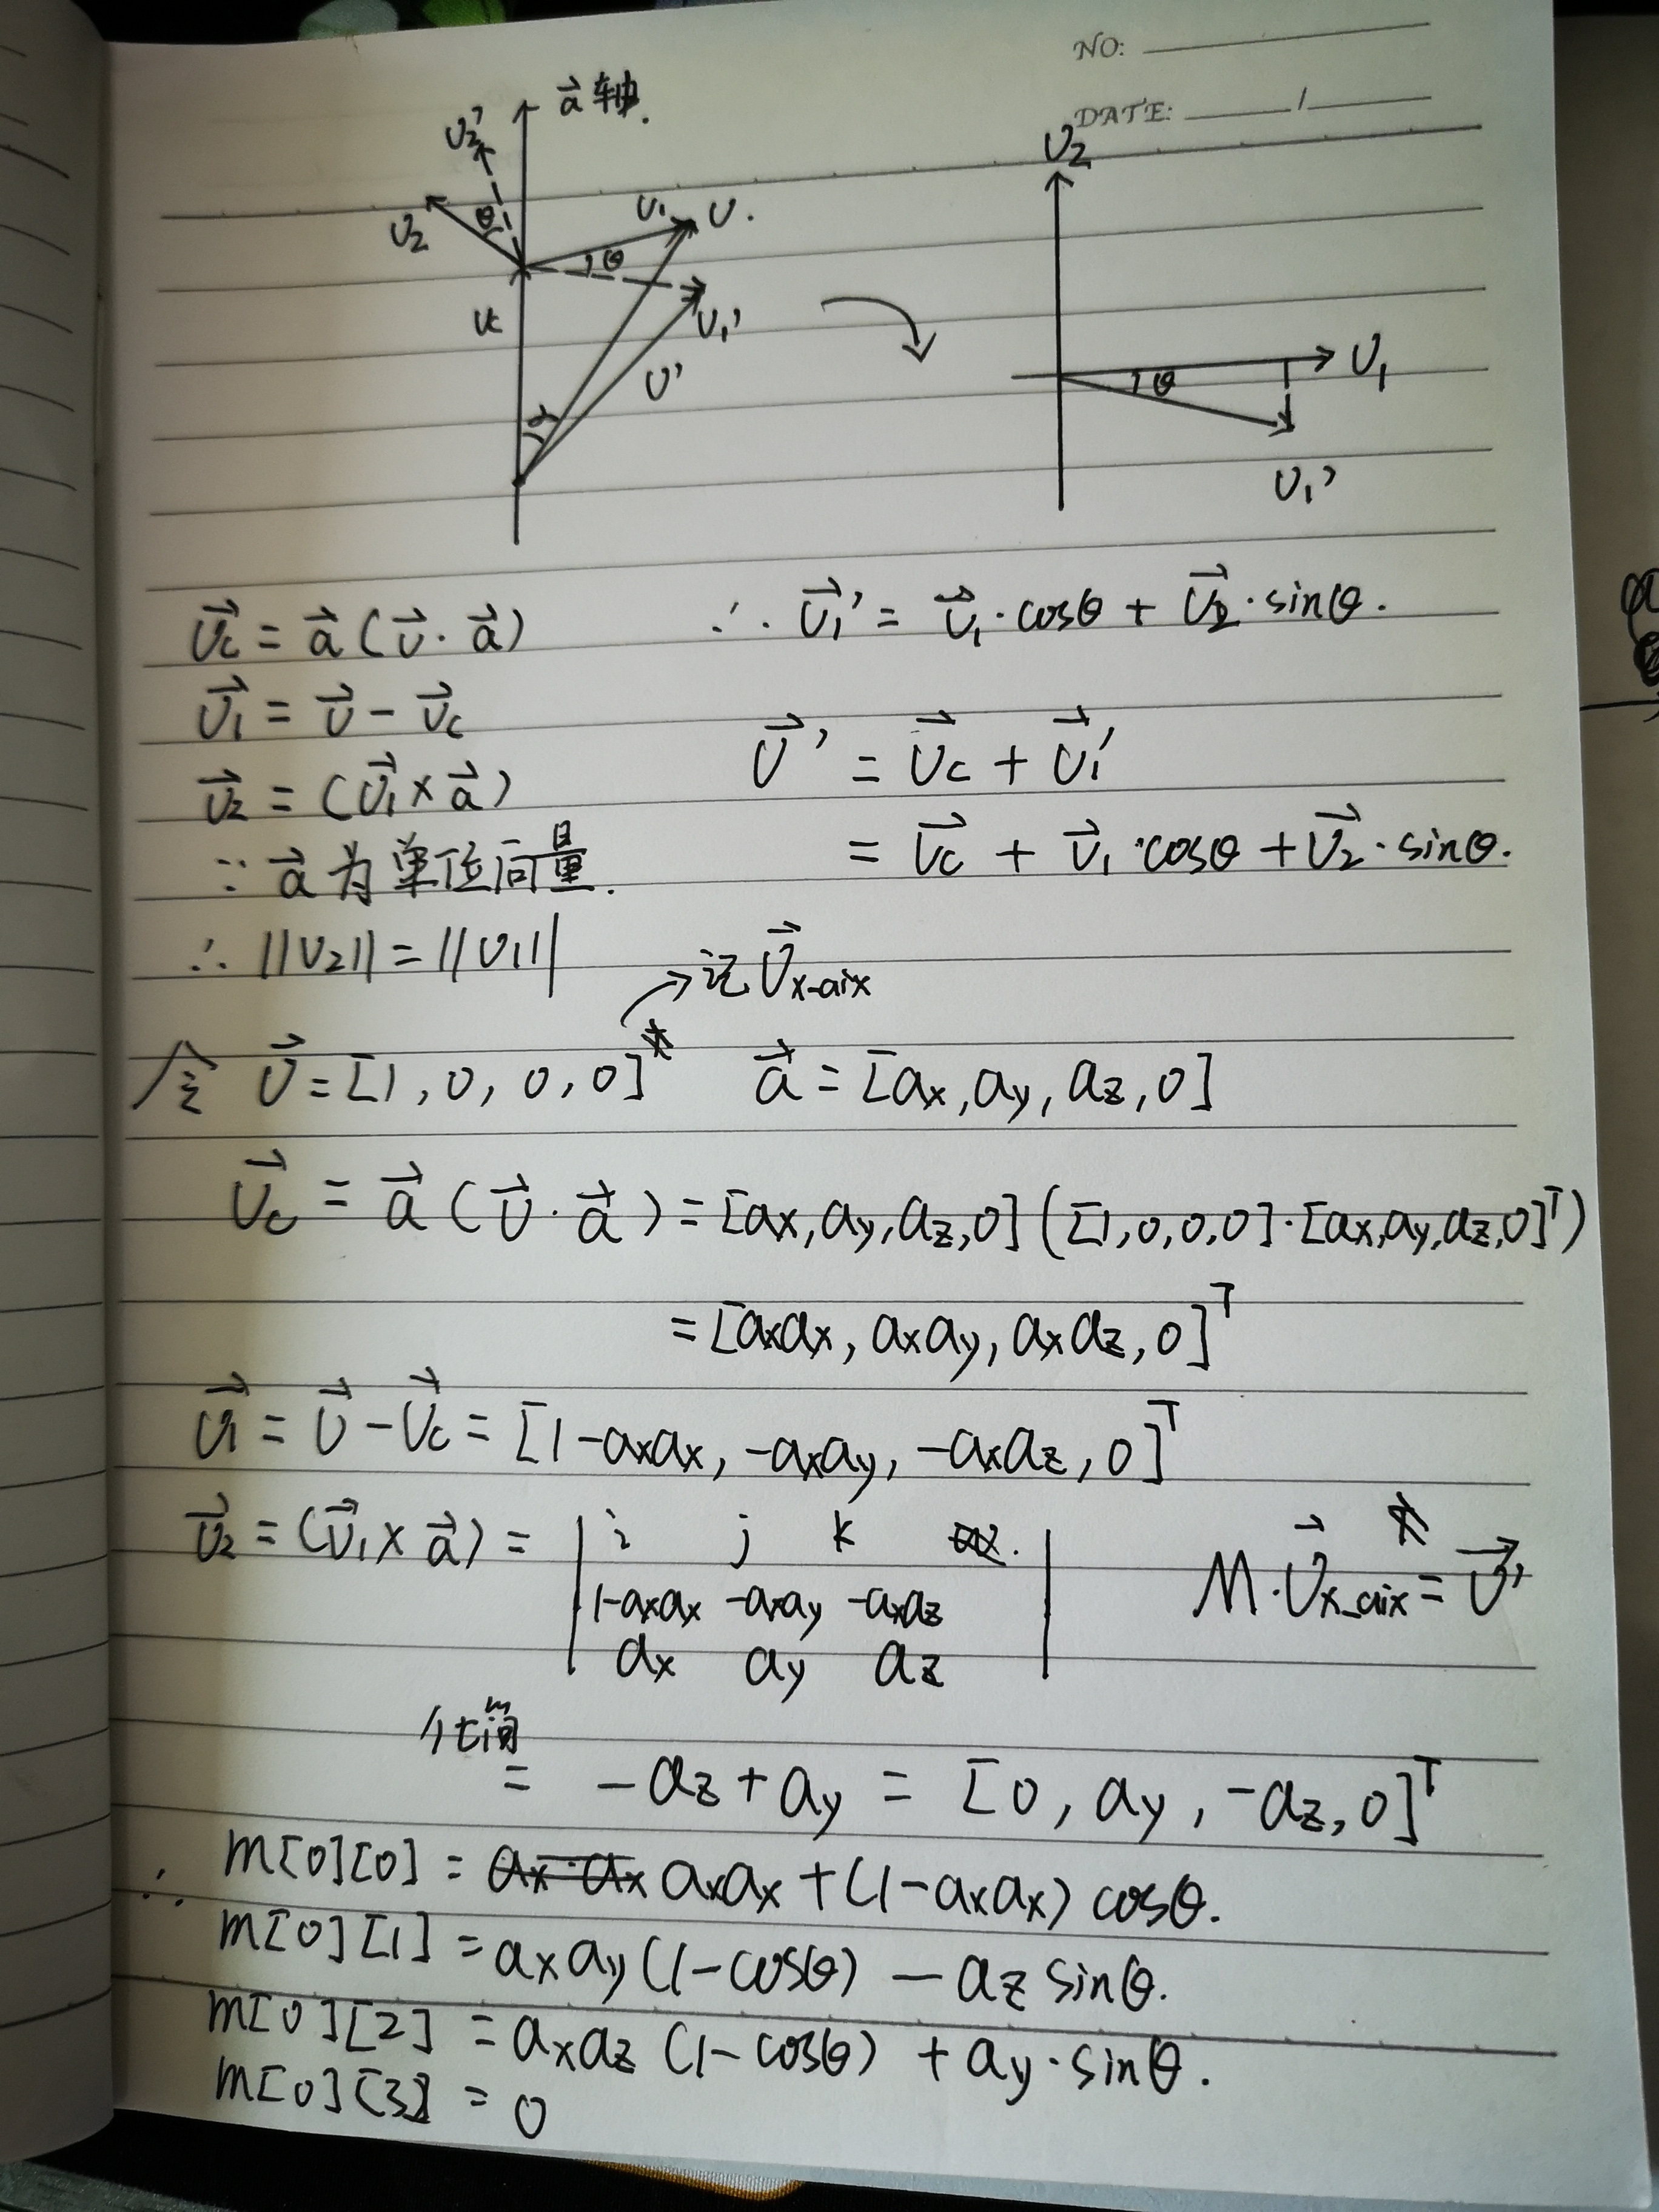 NO:
DATE: /
a⃗ 轴.
v₂'
v₂
θ
v₁
v.
θ
v₁'
vc
v'
α
v₂
v₁
θ
v₁'
v⃗c = a⃗ (v⃗ · a⃗)
∴ v⃗₁' = v⃗₁ · cosθ + v⃗₂ · sinθ.
v⃗₁ = v⃗ - v⃗c
v⃗' = v⃗c + v⃗₁'
v⃗₂ = (v⃗₁ × a⃗)
= v⃗c + v⃗₁ · cosθ + v⃗₂ · sinθ.
∵ a⃗ 为单位向量.
∴ ||v₂|| = ||v₁||
→ 记 v⃗x-aix
令 v⃗ = [1, 0, 0, 0]* a⃗ = [ax, ay, az, 0]
v⃗c = a⃗ (v⃗ · a⃗) = [ax, ay, az, 0] ([1, 0, 0, 0] · [ax, ay, az, 0]ᵀ)
= [axax, axay, axaz, 0]ᵀ
v⃗₁ = v⃗ - v⃗c = [1-axax, -axay, -axaz, 0]ᵀ
v⃗₂ = (v⃗₁ × a⃗) = | i j k |
1-axax -axay -axaz
ax ay az
*
M · v⃗x_aix = v⃗'
化简
= -az + ay = [0, ay, -az, 0]ᵀ
∴ m[0][0] = ax·ax axax + (1-axax) cosθ.
m[0][1] = axay(1-cosθ) - az sinθ.
m[0][2] = axaz (1-cosθ) + ay · sinθ.
m[0][3] = 0